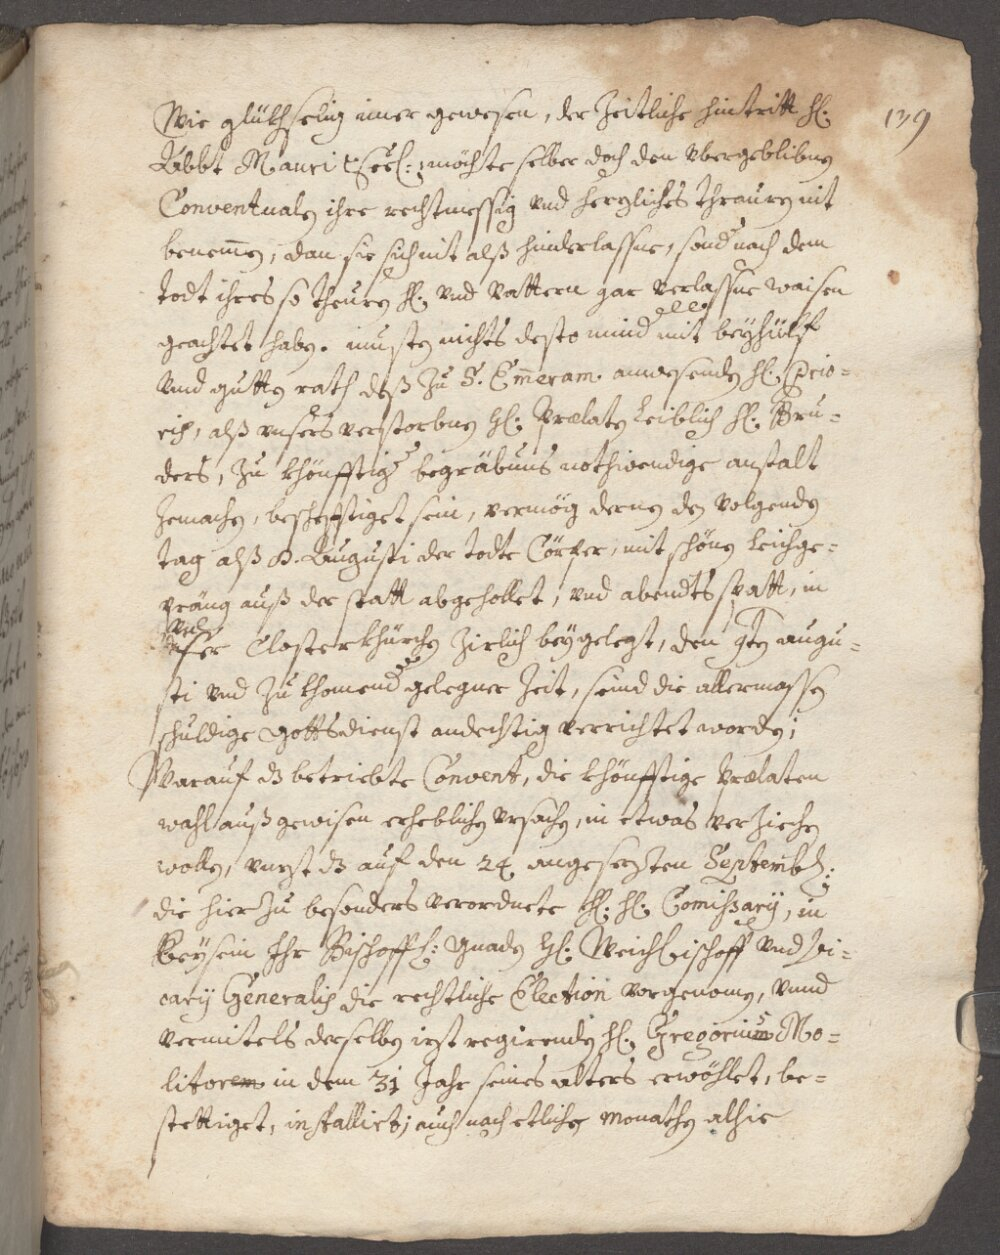 139
Wie glükhselig imer gewesen, der Zeitliche hintritt H:
Abbt Mauri Seel:, möchte selber doch den Vbergeblibnen
Conventualen ihre rechtmessig vnd herzliches threuren nit
benemen, dan sie sich nit alß hinderlassne, sond nach dem
todt ihres so theuren H: vnd Vattern gar verlassne waisen
geachtet haben. musten nichts desto mind mit beÿhülf
vnd gutten rath deß zu S. Emeram anwesenden H: Prio-
ris, alß vnsers verstorbnen H: Prælaten leiblich H: Bru-
ders, zu khönfftig begräbnus nothwendige anstalt
zemachen, beschefftiget sein, vermög deren den volgenden
tag alß 8. Augusti der todte Cörper, mit schönen leichge-
präng auß der statt abgehollet, vnd abendts spatt, in
vnser Closterkhürchen zirlich beÿgelegt, den 9ten augu-
sti vnd zu khomend gelegner Zeit, seind die allermassen
schuldige gottsdienst andechtig verrichtet worden;
Warauf dz betriebte Convent, die khönfftige Prælaten
wahl auß gewisen erheblichen vrsachen, in etwas verziehen
wollen, vnzt dz auf den 24 angesezten Septemb:
die hierzu besonders verordnete H: H: Comissarij, in
Beysein Ihr Bischoffl: Gnaden H: Weichbischoff vnd Vi-
carij Generalis die rechtliche Election vorgenomen, vnnd
vermitels derselben iezt regirenden H: Gregorius Mo-
litor in dem 31 Jahr seines alters erwöhlet, be-
stettiget, installiert; auch nach etlichen Monathen alhie